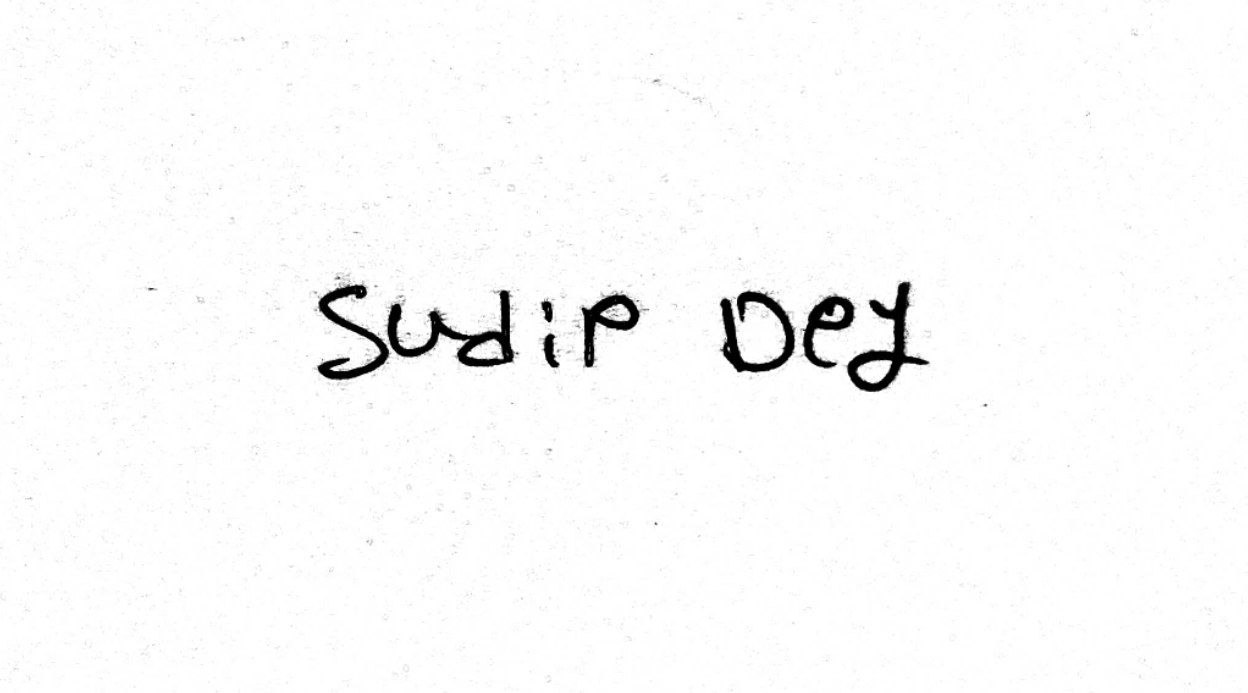 Sudip Dey